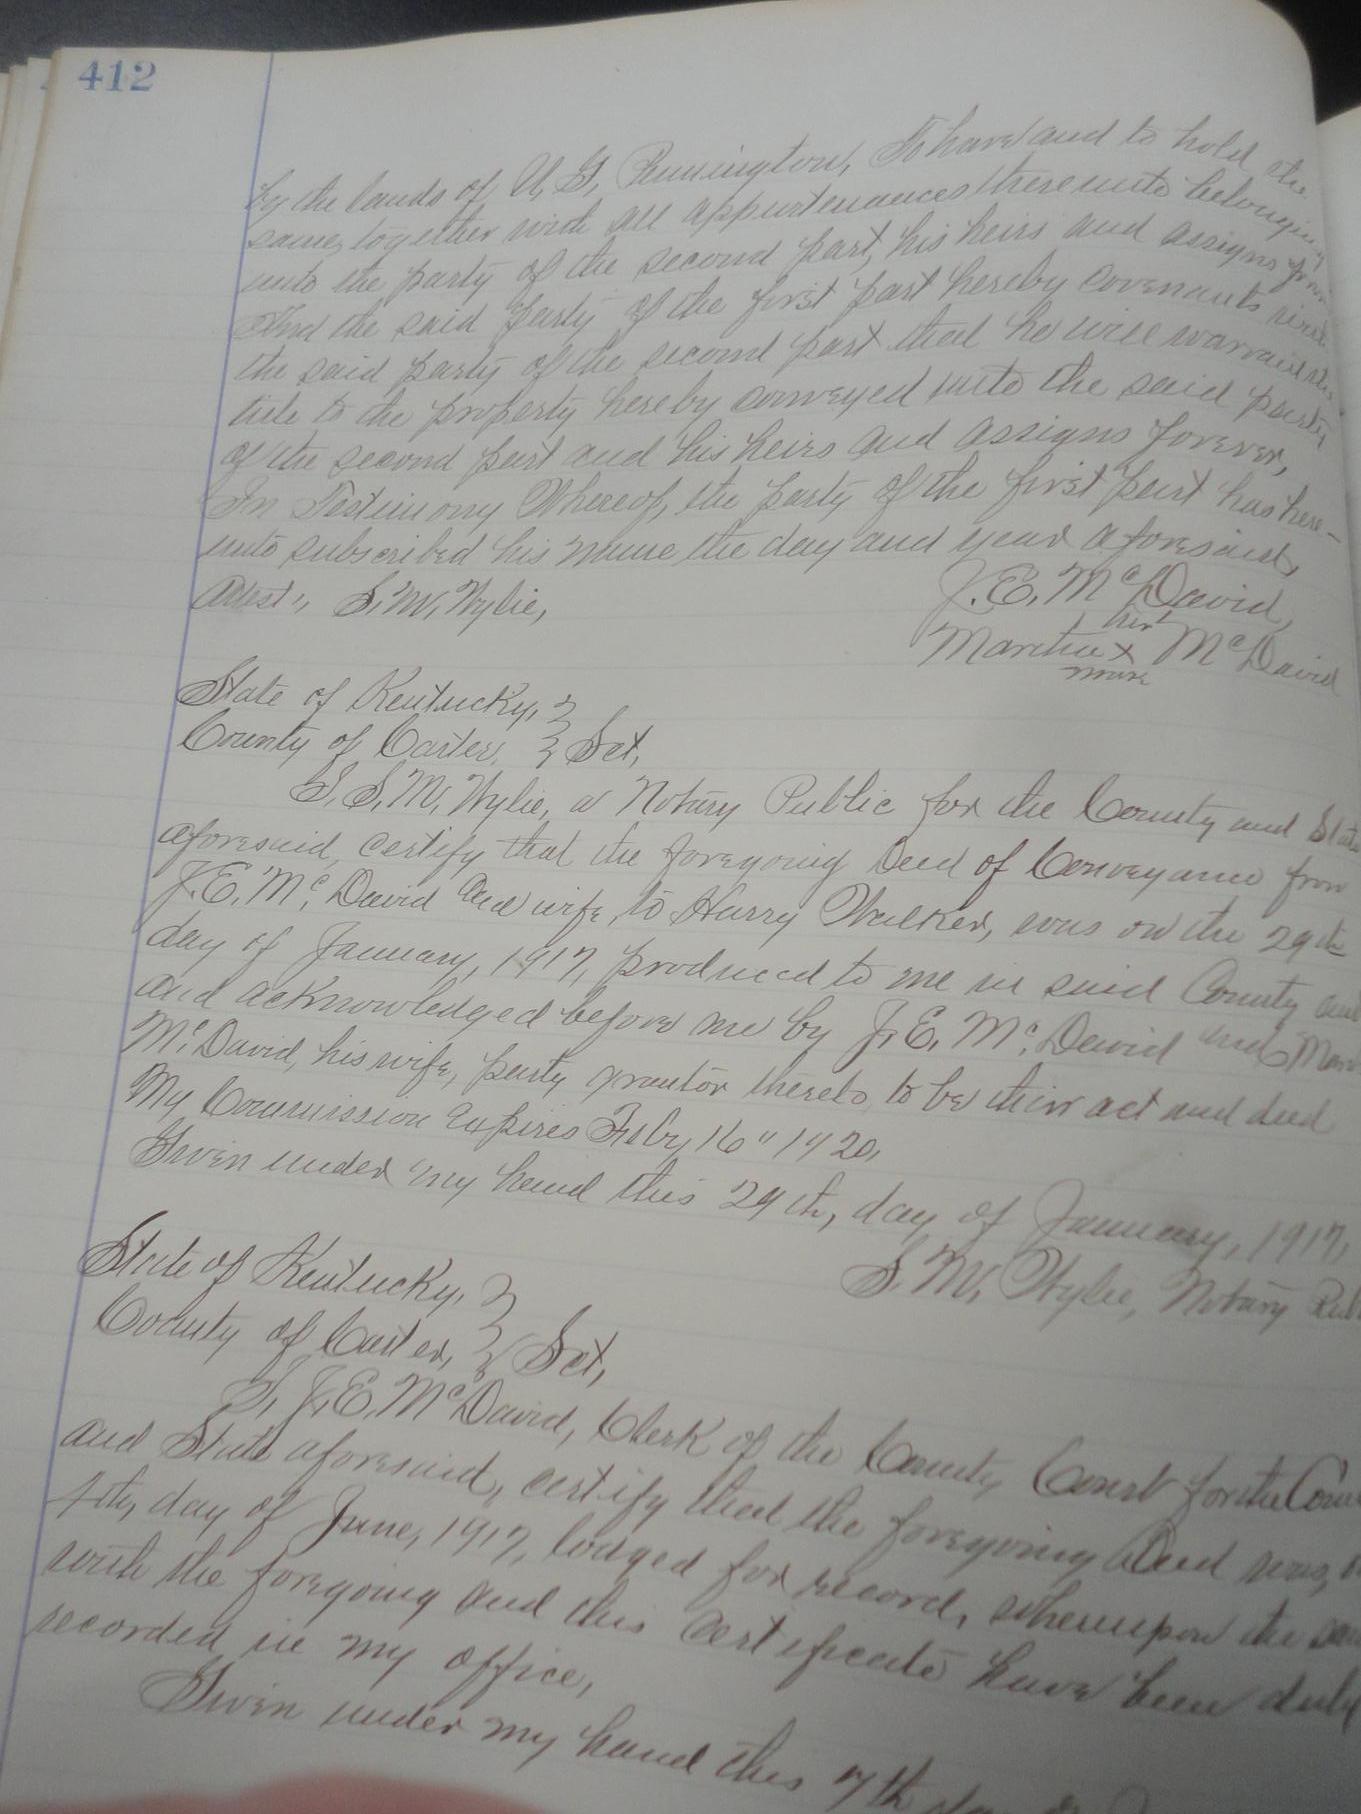 412
by the lands of U. G. Pennington, To have and to hold the
same, together with all appurtenances thereunto belonging
unto the party of the second part, his heirs and assigns
And the said party of the first part hereby covenants with
the said party of the second part that he will warrant the
title to the property hereby conveyed unto the said party
of the second part and his heirs and assigns forever,
In Testimony Whereof, the party of the first part has here-
unto subscribed his name the day and year aforesaid,
Attest:, S. M. Wylie, J. E. McDavid,
her
Martha x McDavid
mark
State of Kentucky, }
County of Carter, } Sct,
I, S. M. Wylie, a Notary Public for the County and State
aforesaid, certify that the foregoing Deed of Conveyance from
J. E. McDavid and wife, to Harry Walker, was on the 29th
day of January, 1917, produced to me in said County and
and acknowledged before me by J. E. McDavid and
McDavid, his wife, party grantor thereto, to be their act and deed
My Commission Expires Feby, 16" 1920,
Given under my hand this 29th, day of January, 1917,
S. M. Wylie, Notary
State of Kentucky, }
County of Carter, } Sct,
I, J. E. McDavid, Clerk of the County Court for the
and State aforesaid, certify that the foregoing Deed was,
day of June, 1917, lodged for record, whereupon the
with the foregoing and this certificate have been duly
recorded in my office,
Given under my hand this 7th